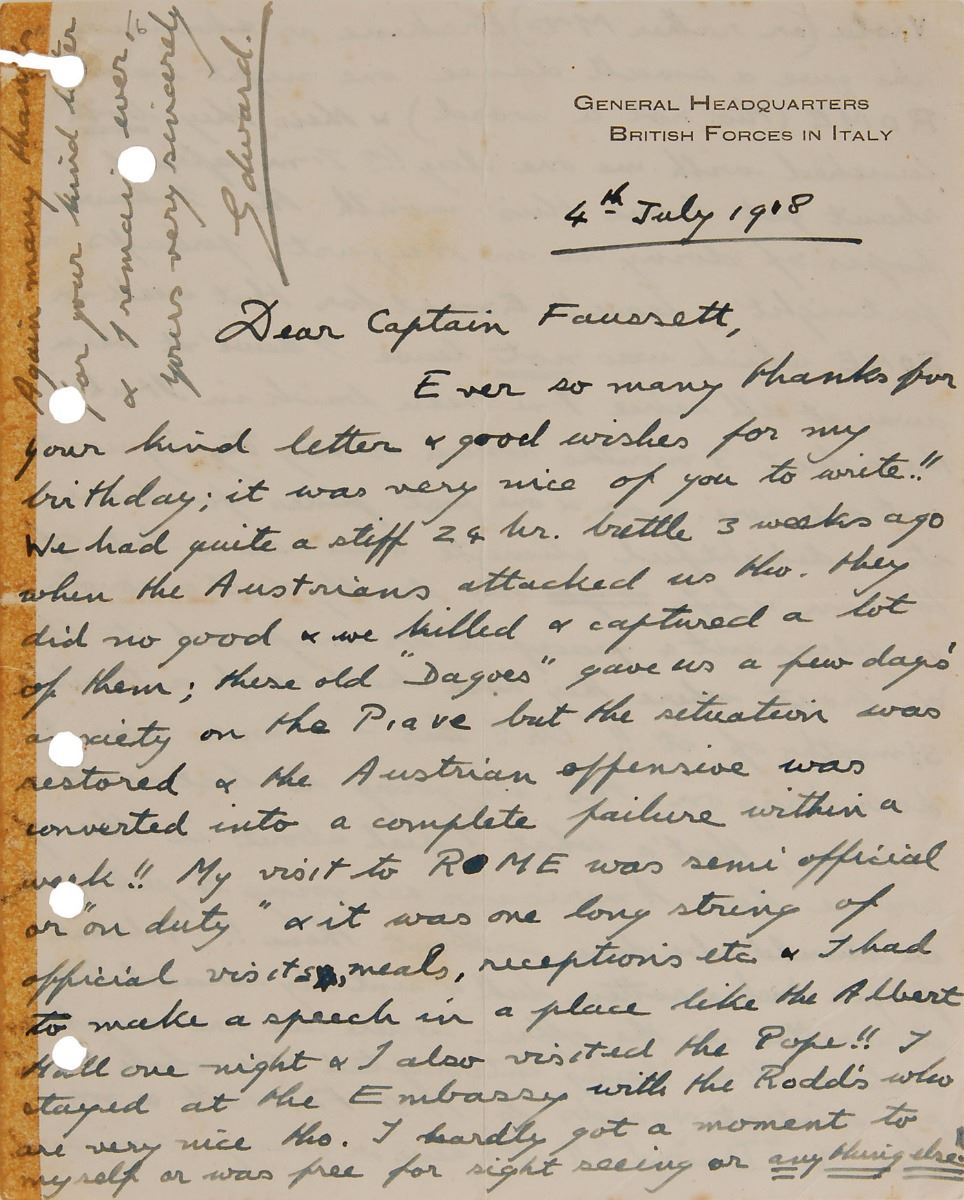 GENERAL HEADQUARTERS
BRITISH FORCES IN ITALY
4th July 1918
Dear Captain Faussett,
Ever so many thanks for
your kind letter & good wishes for my
birthday; it was very nice of you to write!!
We had quite a stiff 24 hr. battle 3 weeks ago
when the Austrians attacked us tho. they
did no good & we killed & captured a lot
of them; these old "Dagoes" gave us a few days'
anxiety on the Piave but the situation was
restored & the Austrian offensive was
converted into a complete failure within a
week!! My visit to ROME was semi official
or "on duty" & it was one long string of
official visits, meals, receptions etc & I had
to make a speech in a place like the Albert
Hall one night & I also visited the Pope!! I
stayed at the Embassy with the Rodd's who
are very nice tho. I hardly got a moment to
myself or was free for sight seeing or anything else!
Again many thanks
for your kind letter
& I remain ever,
yours very sincerely
Edward.